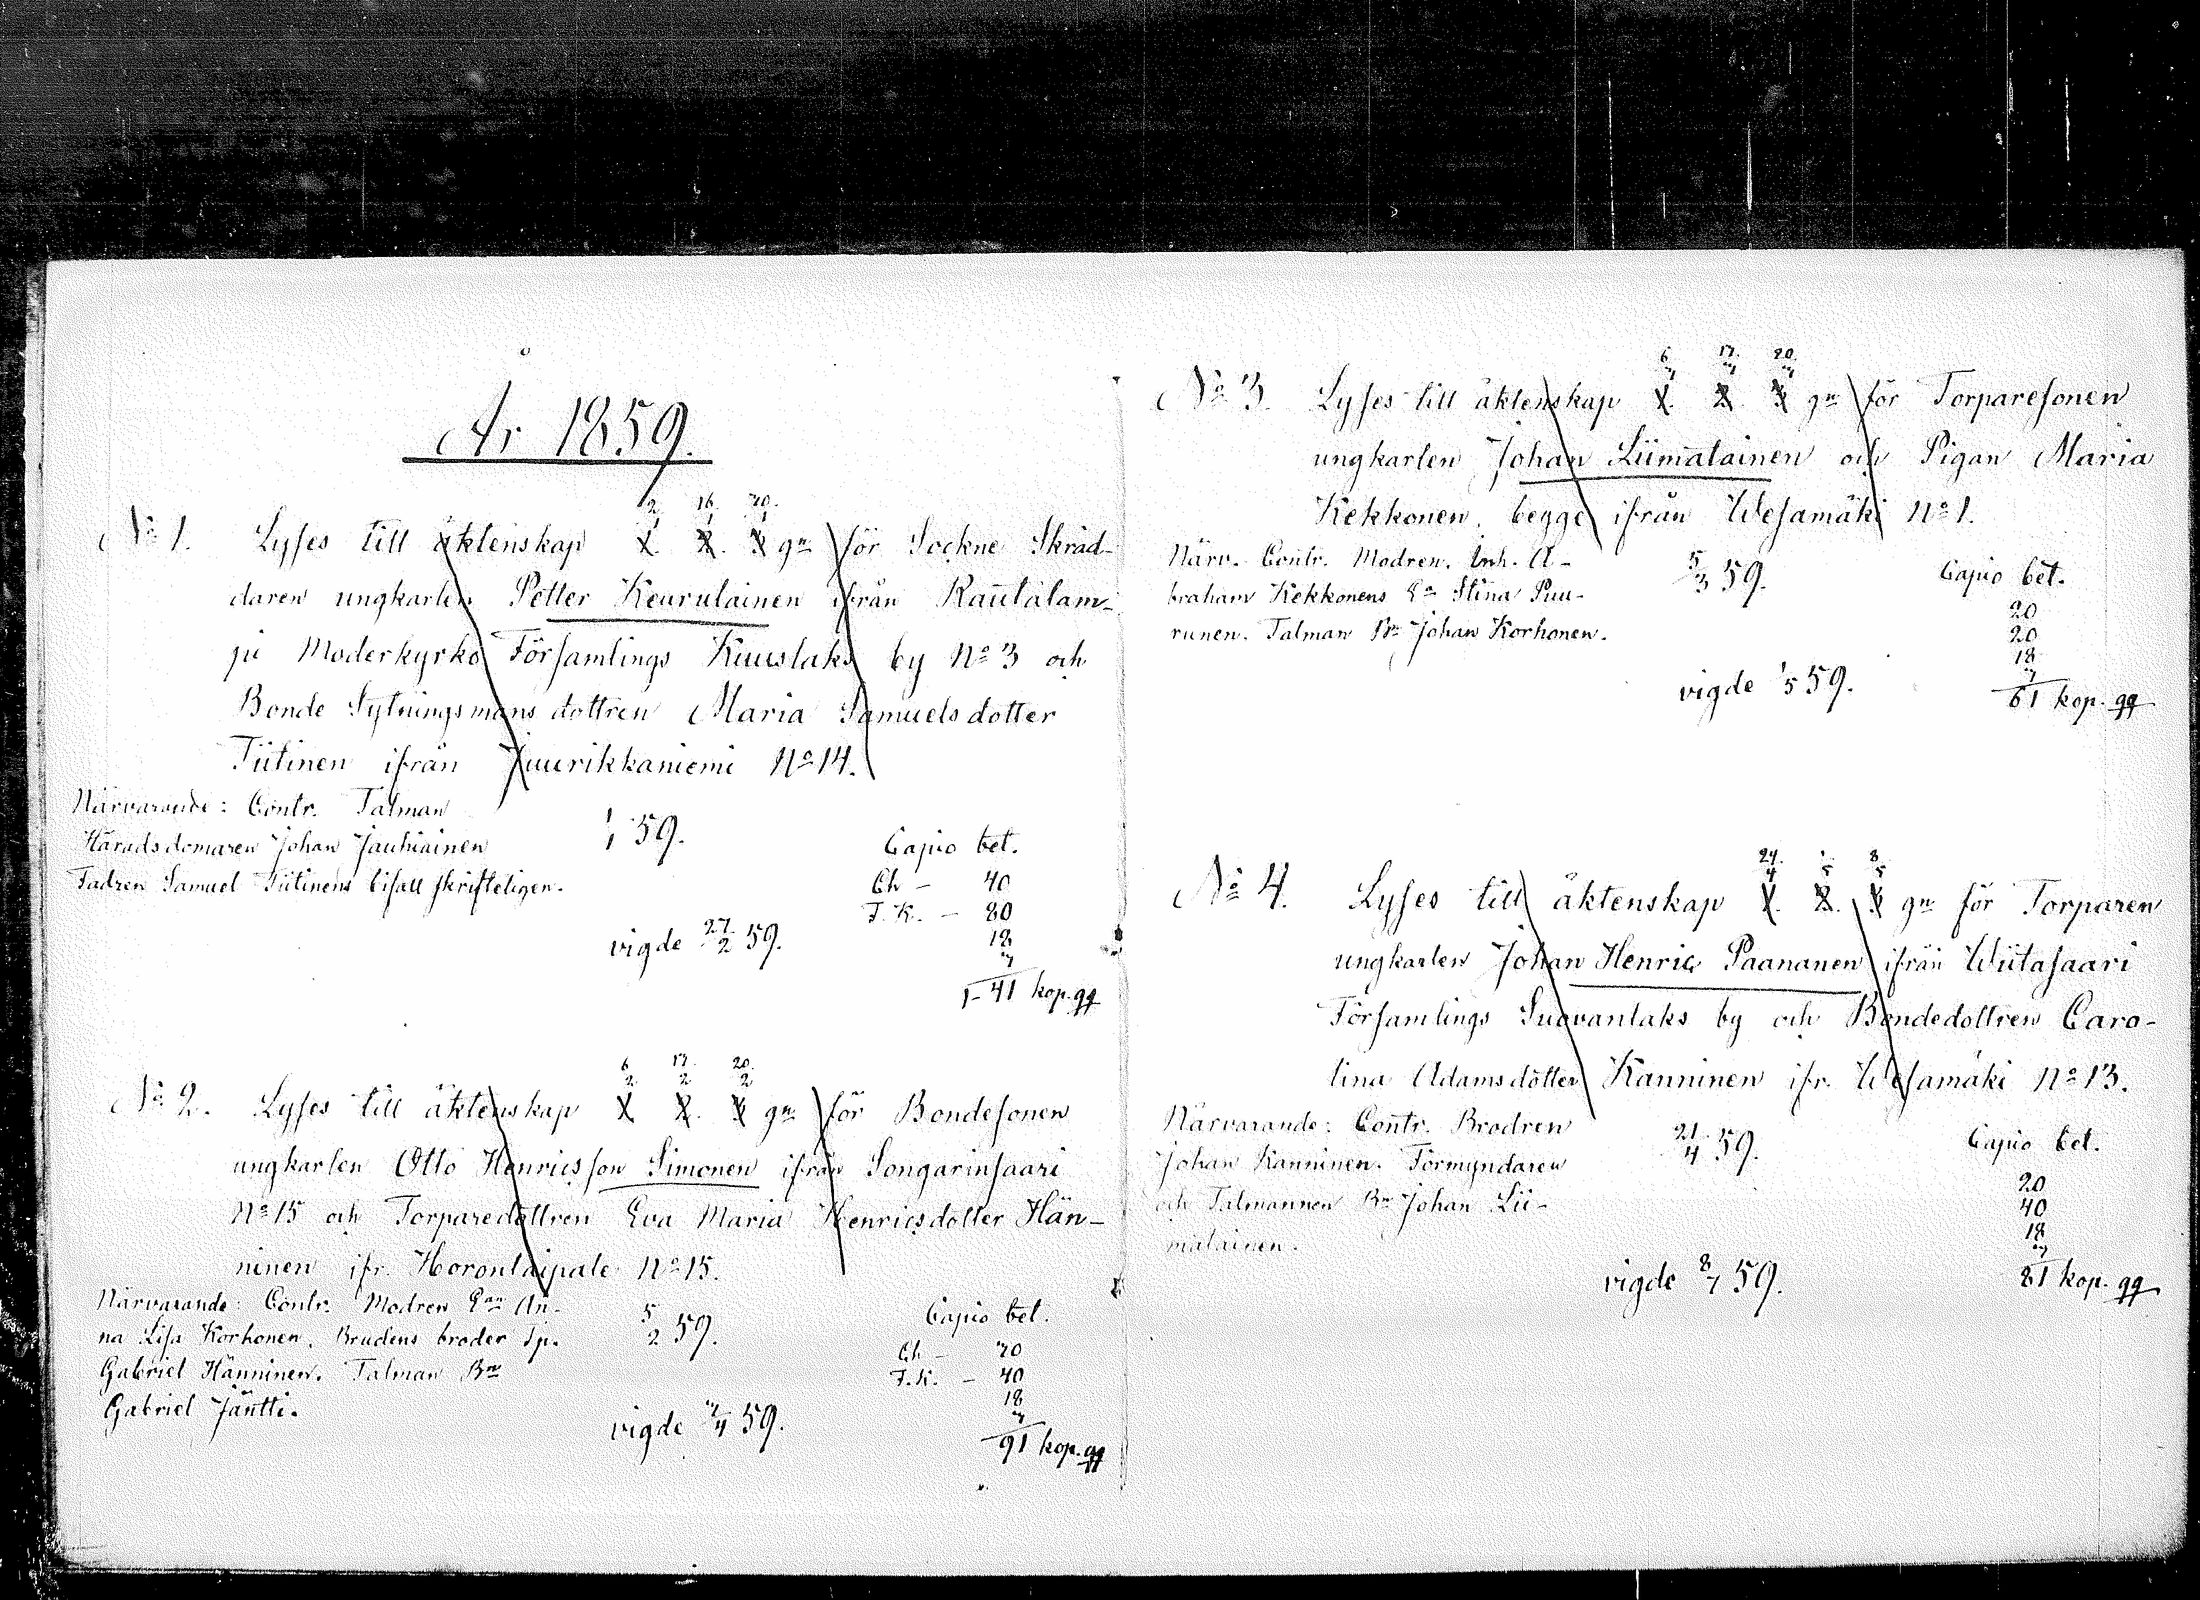 År 1859.
2/1 16/1 30/1
No 1. Lyses till äktenskap 1. 2. 3 gn för Sockne Skräd-
daren ungkarlen Petter Keurulainen ifrån Rautalam-
pi Moderkyrko Församlings Kuuslaks by No 3 och
Bonde Sytningsmans dottren Maria Samuelsdotter
Tiitinen ifrån Juurikkaniemi No 14.
Närvarande: Contr. Talman
Häradsdomaren Johan Jauhiainen
Fadren Samuel Tiitinens bifall skrifteligen.
1/1 59.
vigde 27/2 59.
Capio bet.
Ch - 40
F. K. - 80
18
3
1-41 kop.
6/2 13/2 20/2
No 2. Lyses till äktenskap 1 2. 3 gn för Bondesonen
ungkarlen Otto Henricsson Simonen ifrån Songarinsaari
No 15 och Torparedottren Eva Maria Henricsdotter Hän-
ninen ifr. Horontaipale No 15.
Närvarande: Contr. Modren Enn An-
na Lisa Korhonen. Brudens broder Tp.
Gabriel Hänninen. Talman Bn
Gabriel Jäntti.
5/2 59.
vigde 3/4 59.
Capio bet.
Ch - 30
F. K. - 40
18
3
91 kop.
6/3 13/3 20/3
No 3. Lyses till äktenskap 1. 2. 3 gn för Torparesonen
ungkarlen Johan Liimatainen och Pigan Maria
Kekkonen, begge ifrån Wesamäki No 1.
Närv. Contr. Modren. Inh. A-
braham Kekkonens En Stina Puu-
runen. Talman Bn Johan Korhonen.
5/3 59.
vigde 1/5 59.
Capio bet.
20
20
18
3
61 kop.
24/4 1/5 8/5
No 4. Lyses till äktenskap 1. 2. 3 gn för Torparen
ungkarlen Johan Henric Paananen ifrån Wiitasaari
Församlings Suovanlaks by och Bondedottren Caro-
lina Adamsdotter Kanninen ifr. Wesamäki No 13.
Närvarande: Contr. Brodren
Johan Kanninen. Förmyndaren
och Talmannen Bn Johan Lii-
matainen.
21/4 59.
vigde 8/7 59.
Capio bet.
20
40
18
3
81 kop.